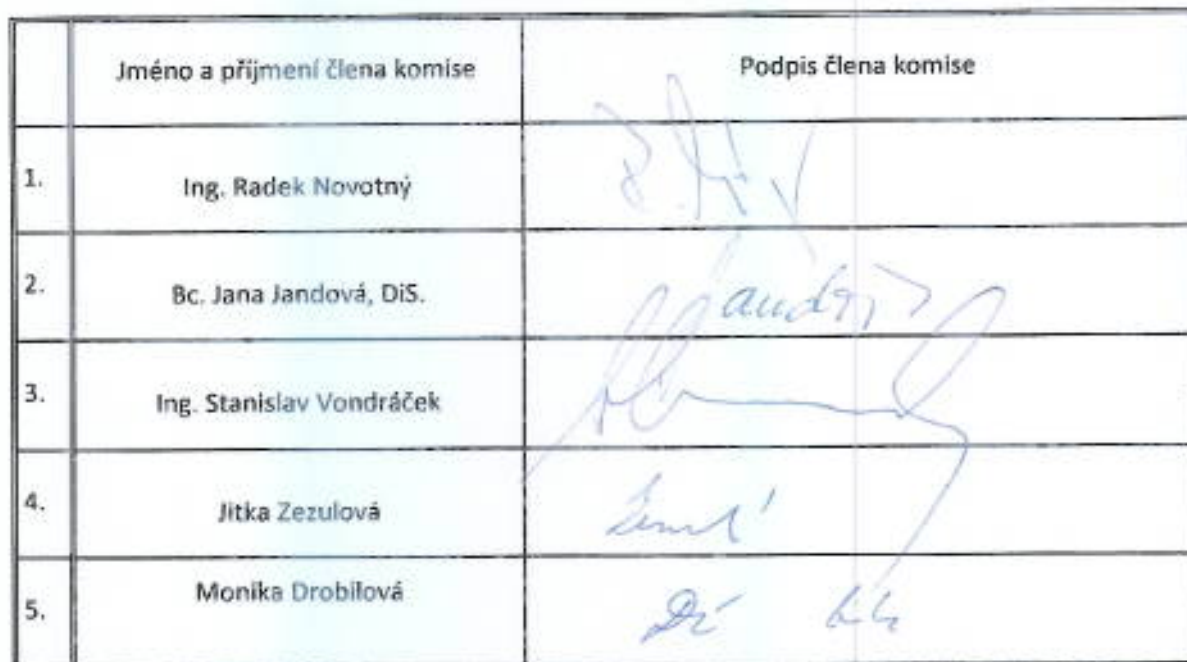 Jméno a příjmení člena komise Podpis člena komise
1. Ing. Radek Novotný
2. Bc. Jana Jandová, DiS.
3. Ing. Stanislav Vondráček
4. Jitka Zezulová
5. Monika Drobilová